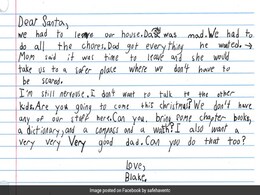 Dear Santa,
we had to leave our house. Dad was mad. We had to
do all the chores. Dad got every thing he wanted.
Mom said it was time to leave and she would
take us to a safer place where we don't have to
be scared.
I'm still nervous. I don't want to talk to the other
kids. Are you going to come this christmas? We don't have
any of our stuff here. Can you bring some chapter books,
a dictionary, and a compass and a watch? I also want a
very very very good dad. Can you do that too?
Love,
Blake
Image posted on Facebook by safehavento